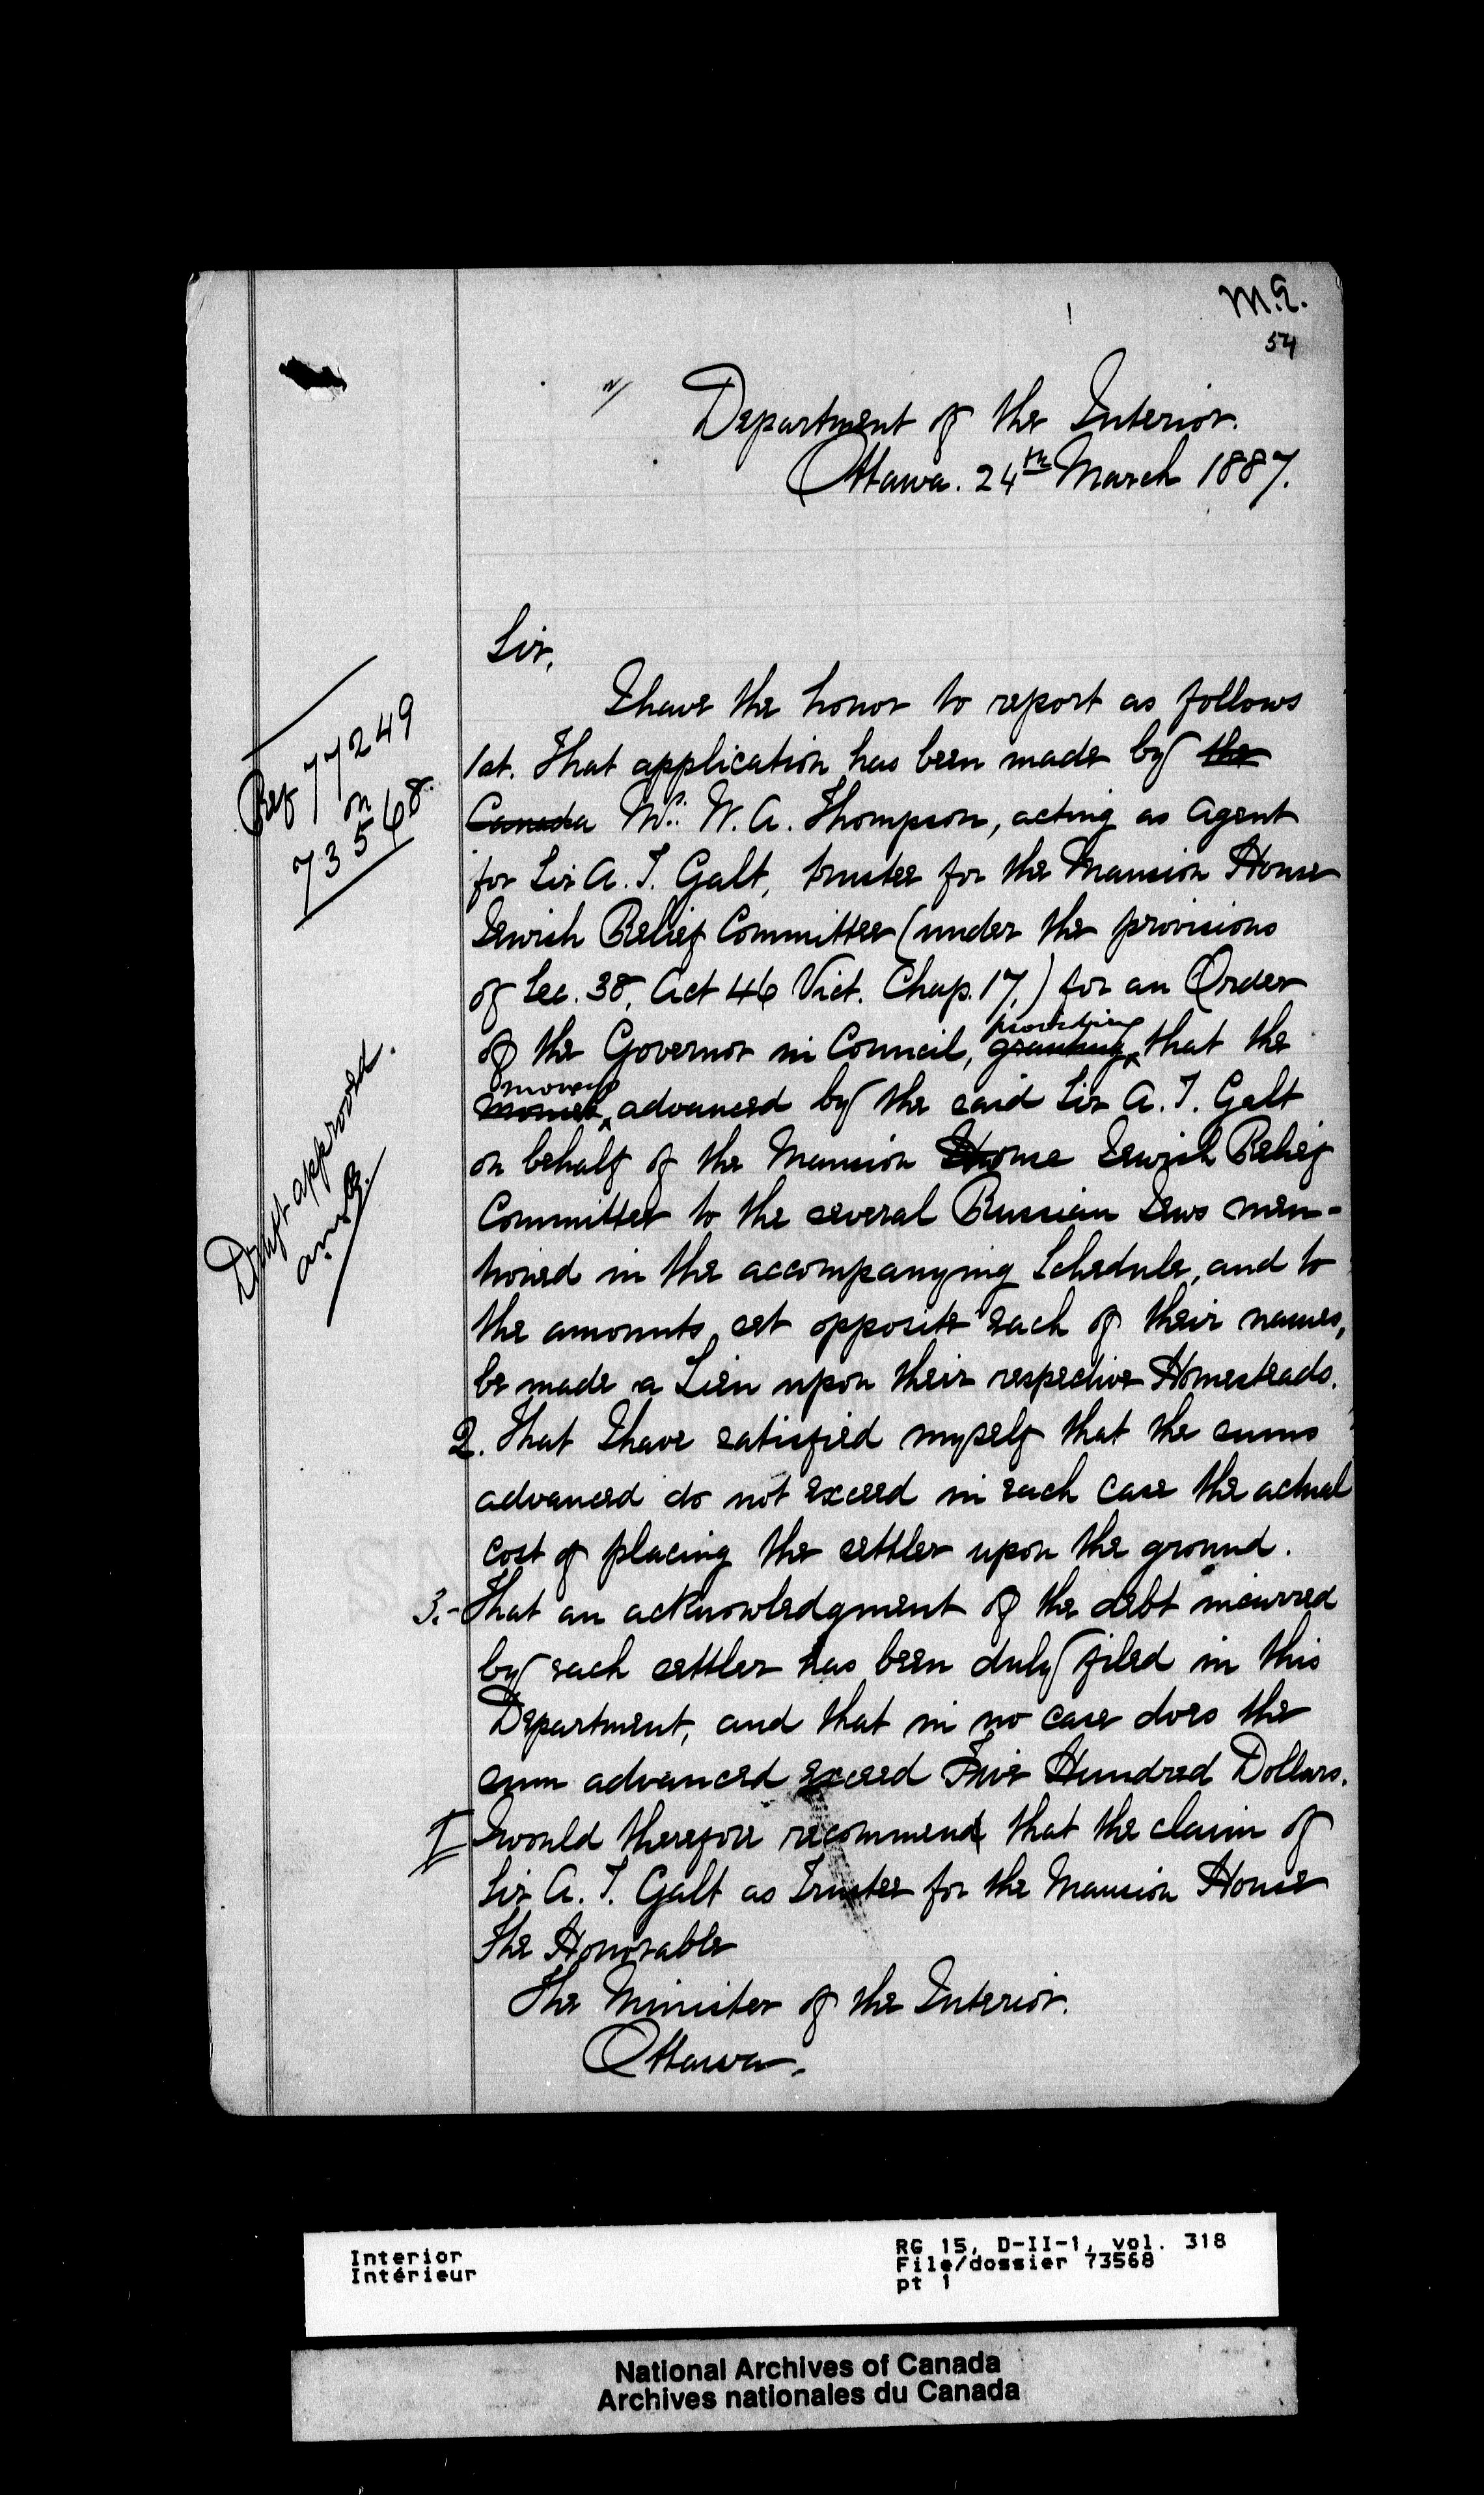 M.Q.
54
Department of the Interior.
Ottawa. 24th March 1887.
Sir,
I have the honor to report as follows
1st. That application has been made by the
Canada Mr. W. A. Thompson, acting as Agent
for Sir A. T. Galt, trustee for the Mansion House
Jewish Relief Committee (under the provisions
of Sec. 38, Act 46 Vict. Chap. 17,) for an Order
of the Governor in Council, granting providing that the
moneys advanced by the said Sir A. T. Galt
on behalf of the Mansion House Jewish Relief
Committee to the several Russian Jews men-
tioned in the accompanying Schedule, and to
the amounts set opposite each of their names,
be made a Lien upon their respective Homesteads.
2. That I have satisfied myself that the sums
advanced do not exceed in each case the actual
cost of placing the settler upon the ground.
3.- That an acknowledgment of the debt incurred
by each settler has been duly filed in this
Department, and that in no case does the
sum advanced exceed Five Hundred Dollars.
I would therefore recommend that the claim of
Sir A. T. Galt as Trustee for the Mansion House
The Honorable
The Minister of the Interior.
Ottawa.
Ref 77249
on
73568
Draft approved.
Interior
Intérieur
RG 15, D-II-1, vol. 318
File/dossier 73568
pt 1
National Archives of Canada
Archives nationales du Canada